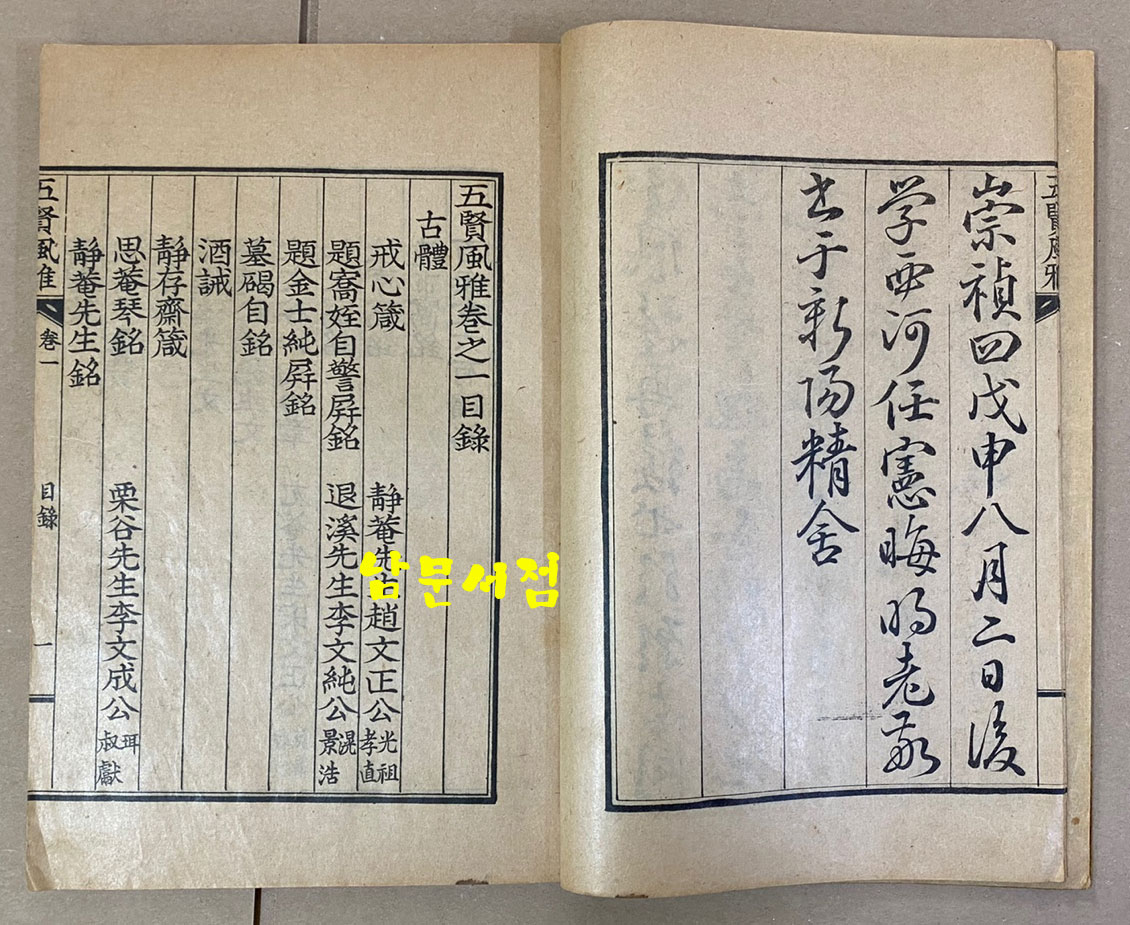 五賢風雅
崇禎四戊申八月二日後
学西河任憲晦明老敬
书于新陽精舍
五賢風雅卷之一目錄
古體
戒心箴 靜菴先生趙文正公 光祖 孝直
題㝯姪自警屛銘 退溪先生李文純公 滉 景浩
題金士純屛銘
墓碣自銘
酒誡
靜存齋箴
思菴琴銘 栗谷先生李文成公 珥 叔獻
靜菴先生銘
五賢風雅 卷一 目錄 一
남문서점